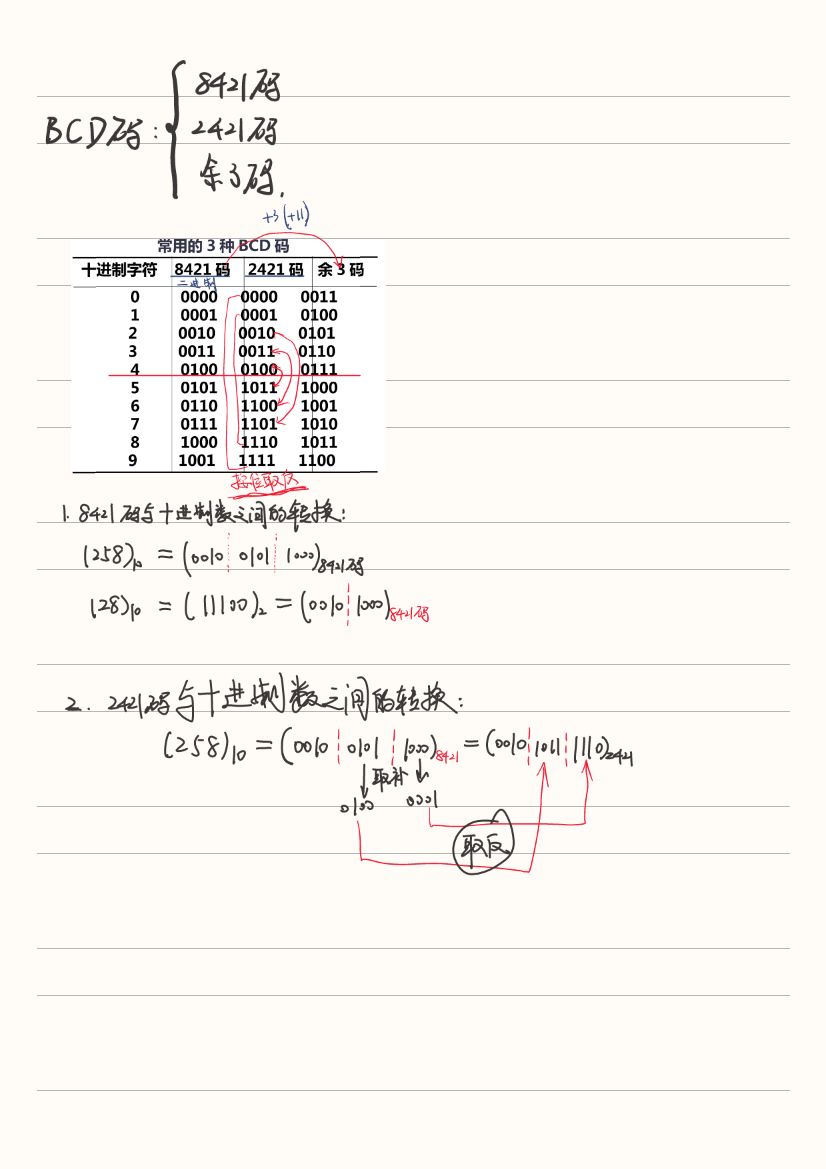 8421码
BCD码: 2421码
余3码.
+3(+11)
常用的 3 种 BCD 码
十进制字符 8421 码 2421 码 余 3 码
二进制
0 0000 0000 0011
1 0001 0001 0100
2 0010 0010 0101
3 0011 0011 0110
4 0100 0100 0111
5 0101 1011 1000
6 0110 1100 1001
7 0111 1101 1010
8 1000 1110 1011
9 1001 1111 1100
按位取反
1. 8421码与十进制数之间的转换:
(258)10 = (0010 0101 1000)8421码
(28)10 = (11100)2 = (0010 1000)8421码
2. 2421码与十进制数之间的转换:
(258)10 = (0010 0101 1000)8421 = (0010 1011 1110)2421
取补
0100 0001
取反